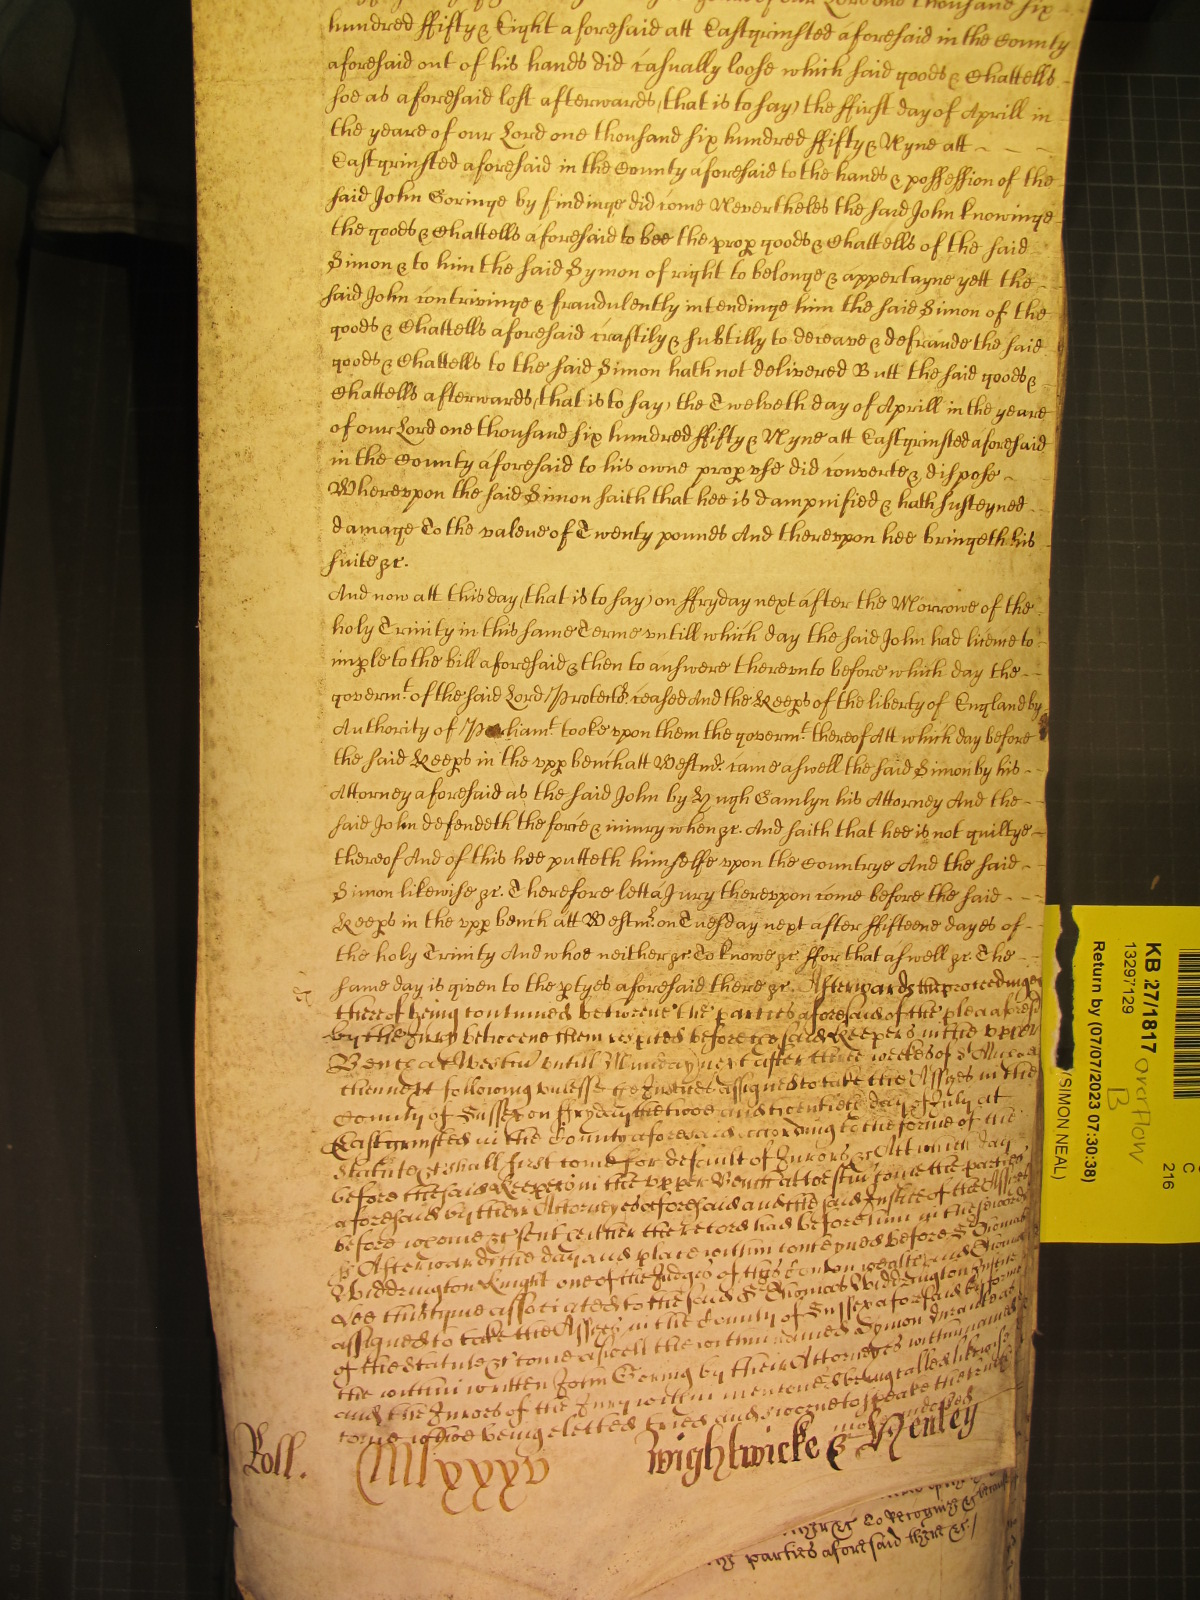 of our Lord one thousand six
hundred ffifty & Eight aforesaid att Eastgrinsted aforesaid in the County
aforesaid out of his hands did casually loose which said goods & Chattells
soe as aforesaid lost afterwards (that is to say) the ffirst day of Aprill in
the yeare of our Lord one thousand six hundred ffifty & Nyne att
Eastgrinsted aforesaid in the County aforesaid to the hands & possession of the
said John Goringe by findinge did come Nevertheles the said John knowinge
the goods & Chattells aforesaid to bee the prop goods & Chattells of the said
Simon & to him the said Symon of right to belonge & appertayne yett the
said John contrivinge & fraudulently intendinge him the said Simon of the
goods & Chattells aforesaid craftily & subtilly to deceave & defraude the said
goods & Chattells to the said Simon hath not delivered Butt the said goods &
Chattells afterwards (that is to say) the Twelveth day of Aprill in the yeare
of our Lord one thousand six hundred ffifty & Nyne att Eastgrinsted aforesaid
in the County aforesaid to his owne prop vse did converte & dispose
Wherevpon the said Simon saith that hee is dampnified & hath susteyned
damage To the valeue of Twenty pounds And therevpon hee bringeth his
suite &c.
And now att this day (that is to say) on ffryday next after the Morrowe of the
holy Trinity in this same Terme vntill which day the said John had licence to
imple to the bill aforesaid & then to answere therevnto before which day the
governt. of the said Lord Protectr. ceased And the Keeps of the liberty of England by
Authority of Parliamt. tooke vpon them the governt. thereof Att which day before
the said Keeps in the vpp bench att Westmr. came aswell the said Simon by his
Attorney aforesaid as the said John by Hugh Gamlyn his Attorney And the
said John defendeth the force & iniury when &c. And saith that hee is not guiltye
thereof And of this hee putteth himselfe vpon the Countrye And the said
Simon likewise &c. Therefore lett a Jury therevpon come before the said
Keeps in the vpp bench att Westmr. on Tuesday next after ffifteene dayes of
the holy Trinity And whoe neither &c. To knowe &c. ffor that aswell &c. The
same day is given to the ptyes aforesaid there &c. Afterwards the proceedinges
thereof being continued betweene the parties aforesaid of the plea aforesd
by the Jury betweene them respited before the said Keepers in the vpper
Bench at Westm vntill Munday next after three weekes of St Michaell
then next following vnlesse the Justices assigned to take the Assizes in the
County of Sussex on ffryday the twoe and twentieth day of July at
Eastgrinsted in the County aforesaid according to the forme of the
Statute &c shall first come for default of Jurors &c Att which day
before the said Keepers in the vpper Bench at Westm come the parties
aforesaid by their Attorneyes aforesaid and the said Justices of the Assizes
before whome &c sent hither their record had before him in these words
&c Afterwards the day and place within conteyned before Sr Thomas
Widdrington Knight one of the Judges of this Comon wealth and Thomas
this tyme associated to the said Sr Thomas Widdrington Justice
assigned to take the Assizes in the County of Sussex aforesaid by forme
of the Statute &c come aswell the within named Symon
the within written John Goring by their Attorneyes within named
and the Jurors of the Jury within menconed being called likewise
come whoe being elected tried and sworne to speake the truth
Roll. MlxxxV Wightwicke & Henley
&c To recogniz &c because
parties aforesaid there &c./
KB 271817 overflow
B
13297129
Return by (07/07/2023 07:30:38)
(SIMON NEAL)
C
216